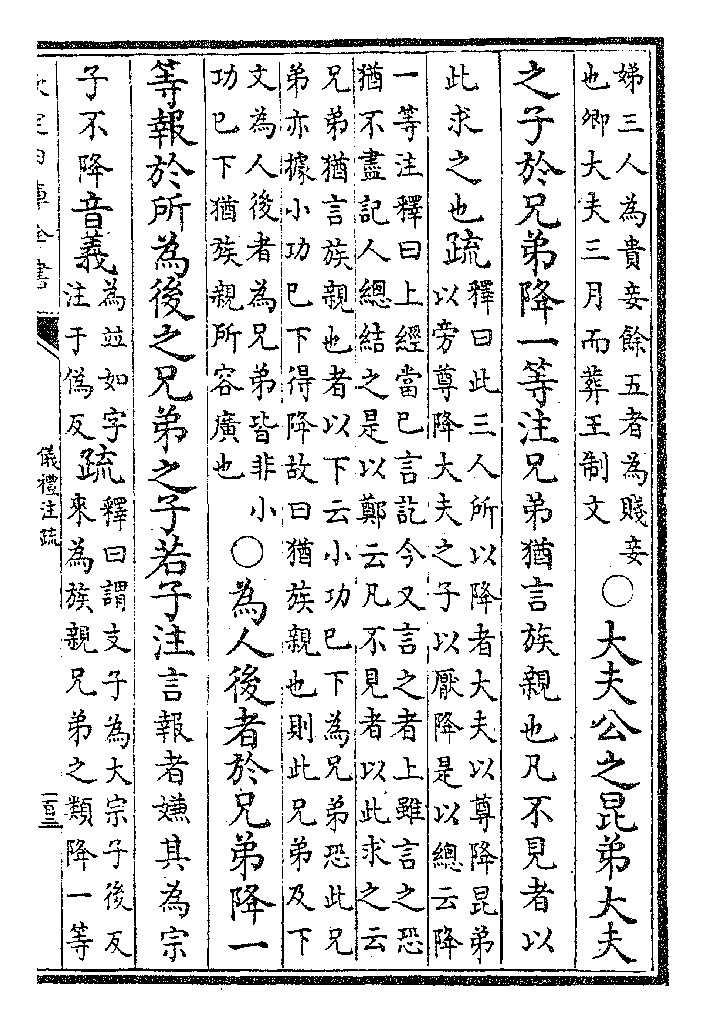 娣三人為貴妾餘五者為賤妾
也卿大夫三月而葬王制文
○大夫公之昆弟大夫
之子於兄弟降一等注兄弟猶言族親也凡不見者以
此求之也疏
釋曰此三人所以降者大夫以尊降昆弟
以旁尊降大夫之子以厭降是以總云降
一等注釋曰上經當已言訖今又言之者上雖言之恐
猶不盡記人總結之是以鄭云凡不見者以此求之云
兄弟猶言族親也者以下云小功已下為兄弟恐此兄
弟亦據小功已下得降故曰猶族親也則此兄弟及下
文為人後者為兄弟皆非小
功已下猶族親所容廣也
○為人後者於兄弟降一
等報於所為後之兄弟之子若子注言報者嫌其為宗
子不降音義
為並如字
注于偽反
疏
釋曰謂支子為大宗子後反
來為族親兄弟之類降一等
欽定四庫全書
儀禮注疏
一百三